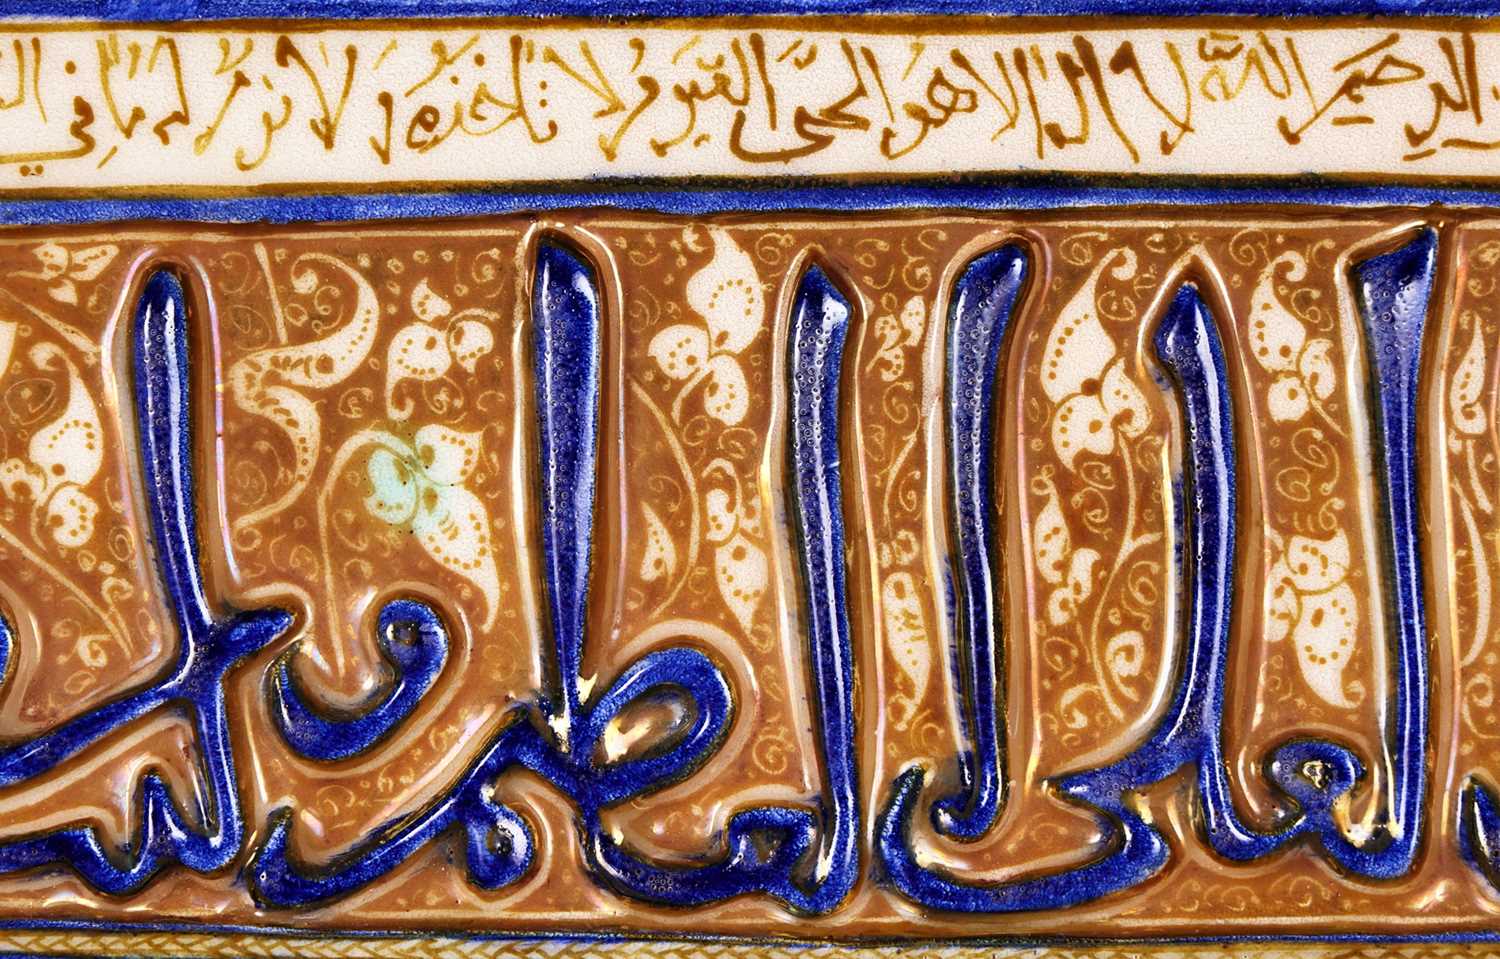 الرحيم الله لا اله الا هو الحى القيوم لا تاخذه ولا نوم له ما في
العلى العظيم